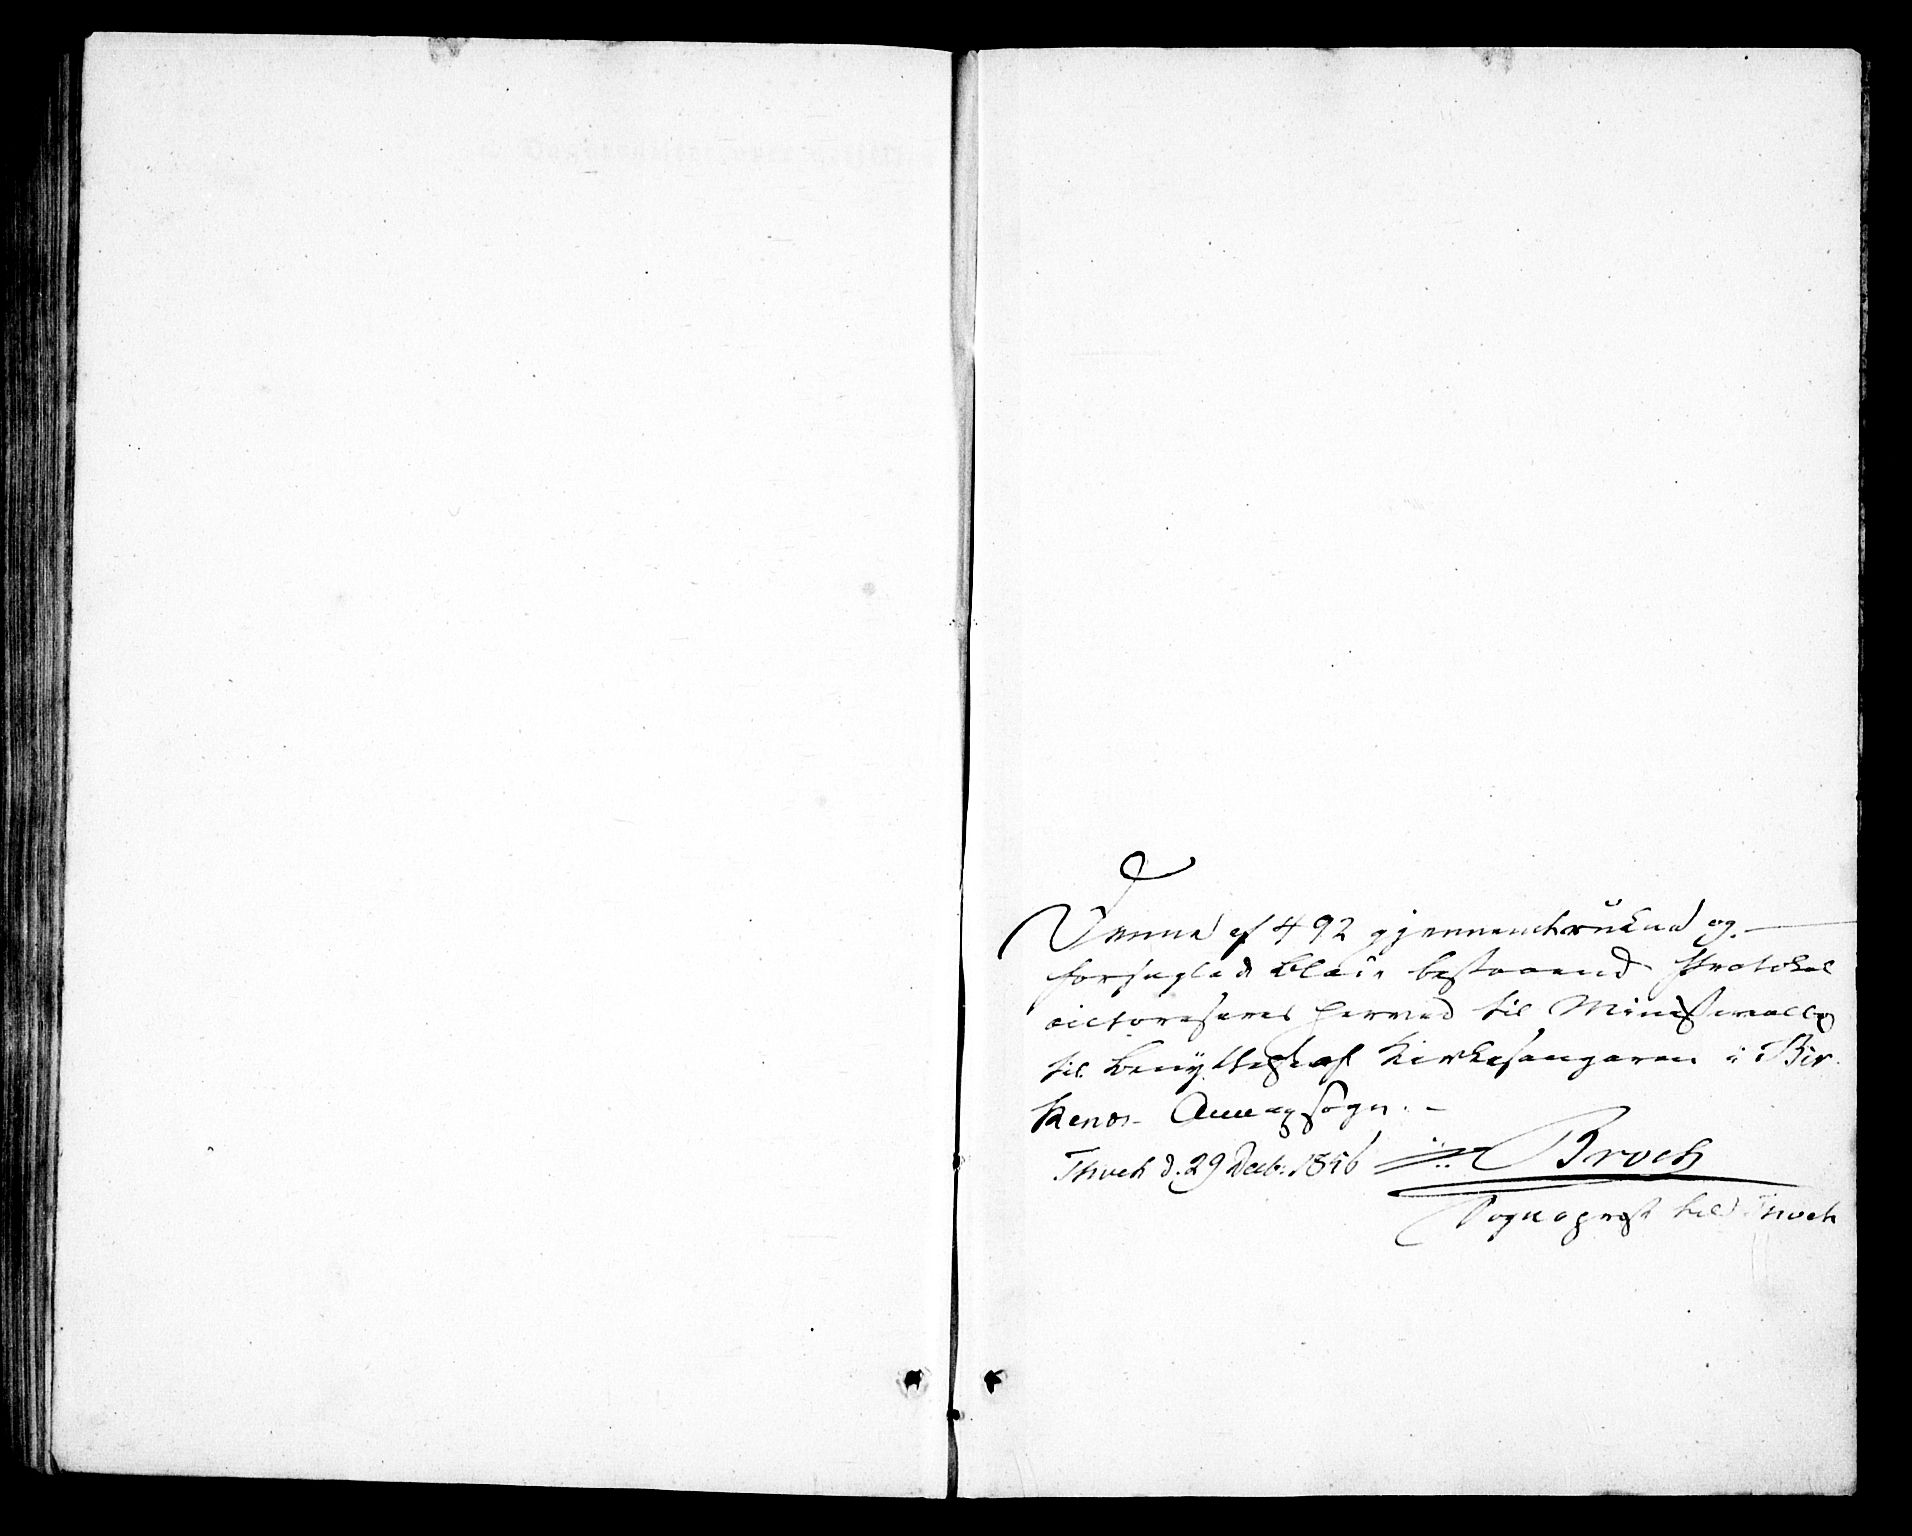 Denne af 492 gjennemtrukne og
forseglede Blade bestaaende Protokol
autoriseres herved til Ministerialbog
til Benyttelse af Kirkesangeren i Bir-
kenes Annexsogn. -
d. 29 Decb. 1856 Broch
Sognepræst til